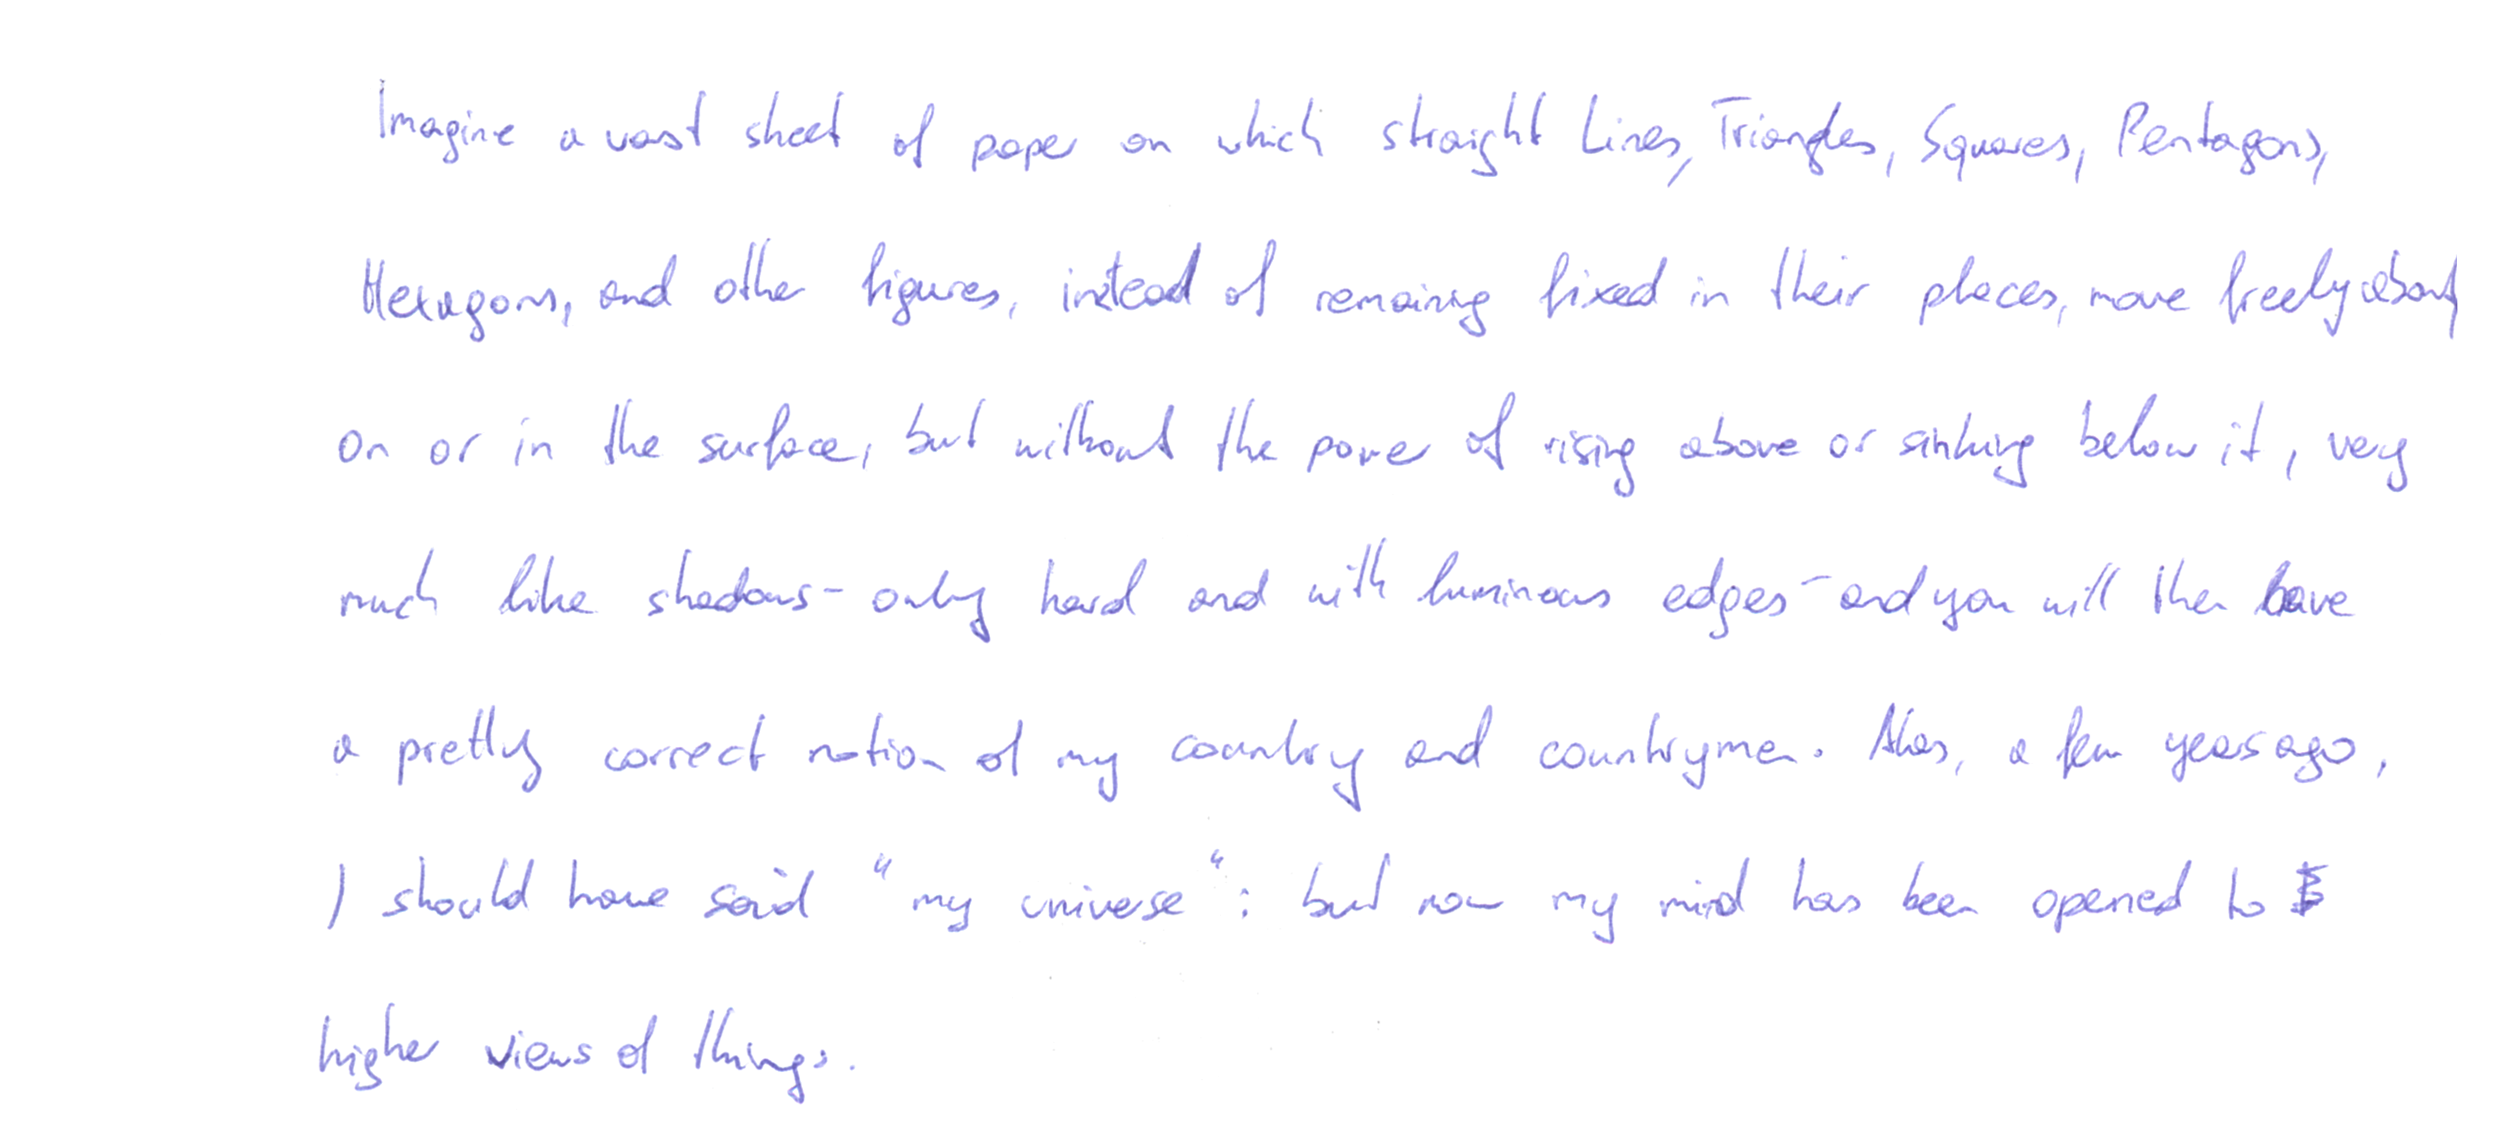 Imagine a vast sheet of paper on which straight Lines, Triangles, Squares, Pentagons,
Hexagons, and other figures, instead of remaining fixed in their places, move freely about,
on or in the surface, but without the power of rising above or sinking below it, very
much like shadows - only hard and with luminous edges - and you will then have
a pretty correct notion of my country and countrymen. Alas, a few years ago,
I should have said "my universe": but now my mind has been opened to
higher views of things.